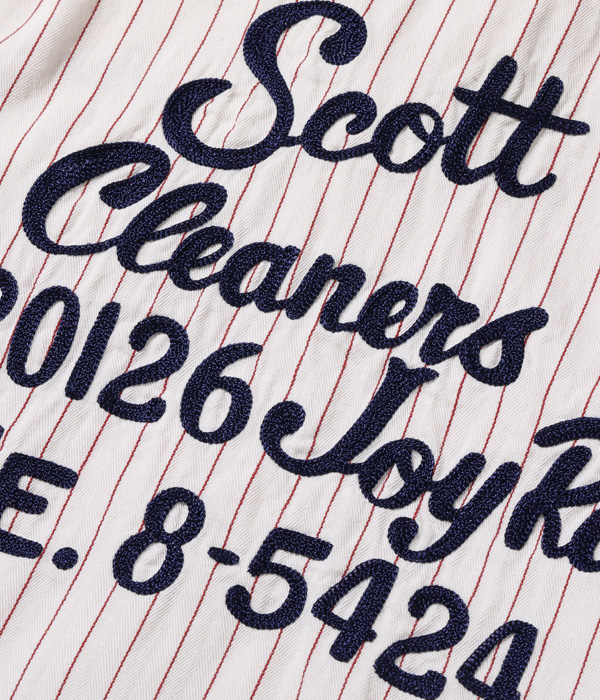 Scott
Cleaners
20126 Joy R
E. 8-5424